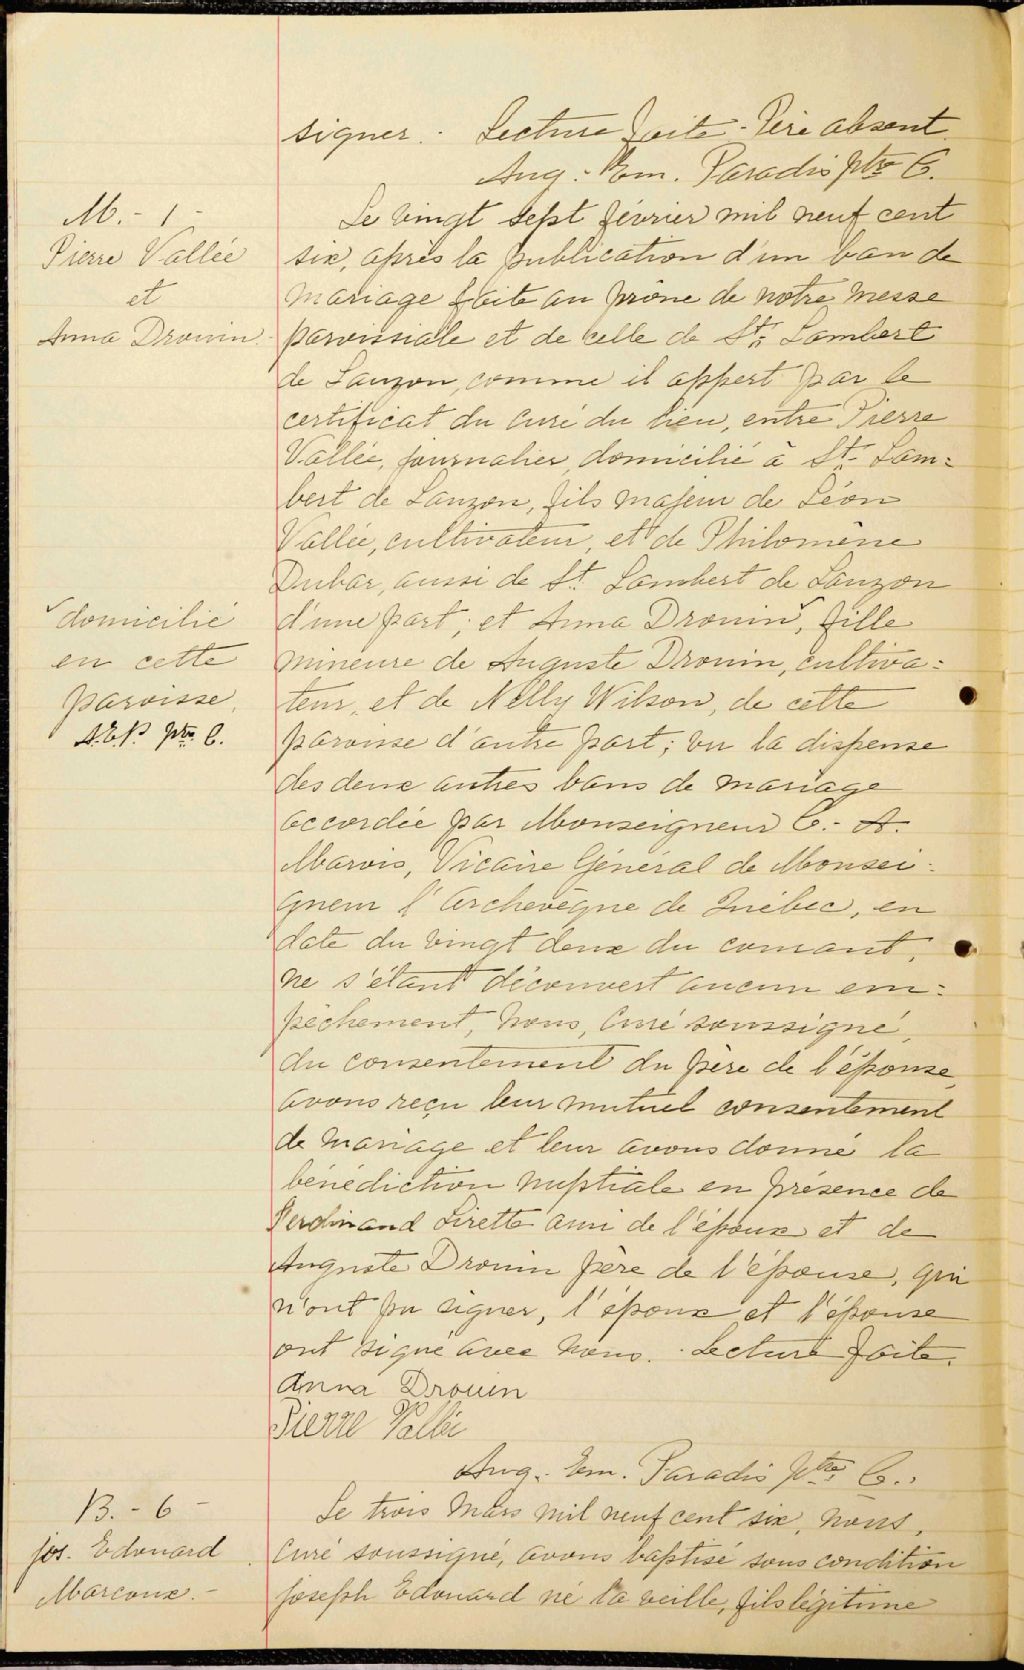 signer. Lecture faite. Père absent
Aug. Em. Paradis ptre C.
M. - 1 -
Pierre Vallée
et
Anna Drouin.
Le vingt sept février mil neuf cent
six, après la publication d'un ban de
mariage faite au prône de notre messe
paroissiale et de celle de St. Lambert
de Lauzon, comme il appert par le
certificat du curé du lieu, entre Pierre
Vallée, journalier, domicilié à St. Lam=
bert de Lauzon, fils majeur de Léon
Vallée, cultivateur, et de Philomène
Dubar, aussi de St. Lambert de Lauzon
d'une part; et Anna Drouin ˅, fille
mineure de Auguste Drouin, cultiva=
teur, et de Nelly Wilson, de cette
paroisse d'autre part; vu la dispense
des deux autres bans de mariage
accordée par Monseigneur C.-A.
Marois, Vicaire Général de Monsei-
gneur l'Archevêque de Québec, en
date du vingt deux du courant,
ne s'étant découvert aucun em=
pêchement, nous, curé soussigné,
du consentement du père de l'épouse,
avons reçu leur mutuel consentement
de mariage et leur avons donné la
bénédiction nuptiale en présence de
Ferdinand Lirette ami de l'époux et de
Auguste Drouin père de l'épouse, qui
n'ont pu signer, l'époux et l'épouse
ont signé avec nous. Lecture faite.
Anna Drouin
Pierre Vallée
Aug. Em. Paradis ptre C.
˅ domicilié
en cette
paroisse.
A.E.P. ptre C.
B. - 6 -
Jos. Edouard
Marcoux. -
Le trois Mars mil neuf cent six, nous,
curé soussigné, avons baptisé sous condition
Joseph Edouard né la veille, fils légitime